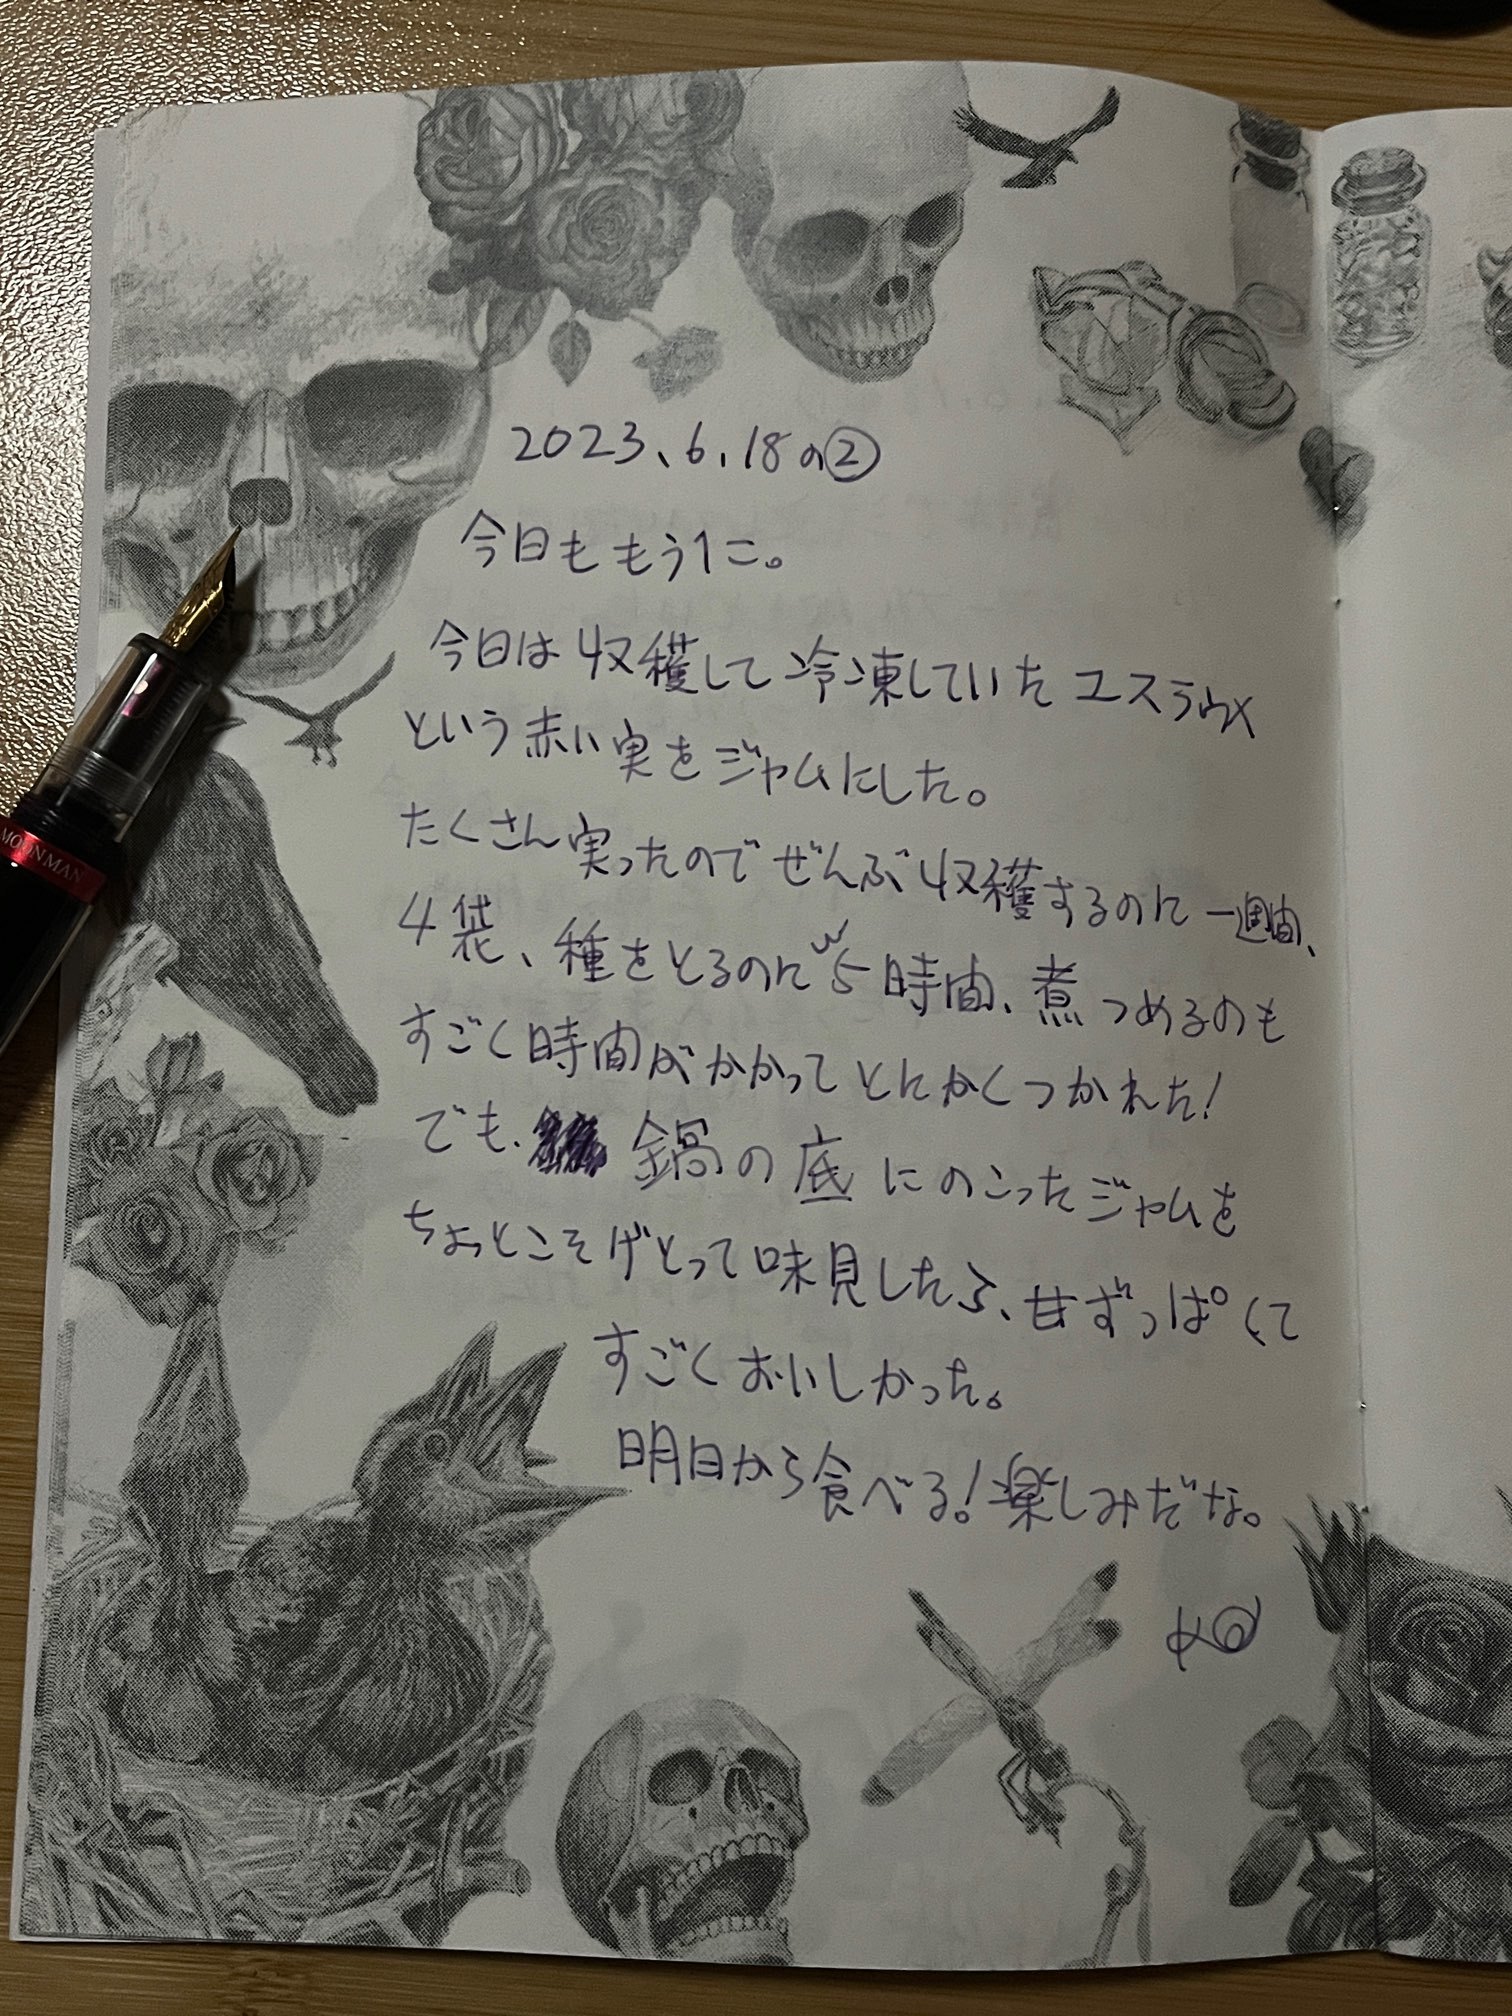 2023、6、18の②
今日ももう1こ。
今日は収穫して冷凍していたユスラウメ
という赤い実をジャムにした。
たくさん実ったのでぜんぶ収穫するのに一週間、
4袋、種をとるのに5時間、煮つめるのも
すごく時間がかかってとにかくつかれた!
でも、鍋の底にのこったジャムを
ちょっとこそげとって味見したら、甘ずっぱくて
すごくおいしかった。
明日から食べる!楽しみだな。
MOONMAN